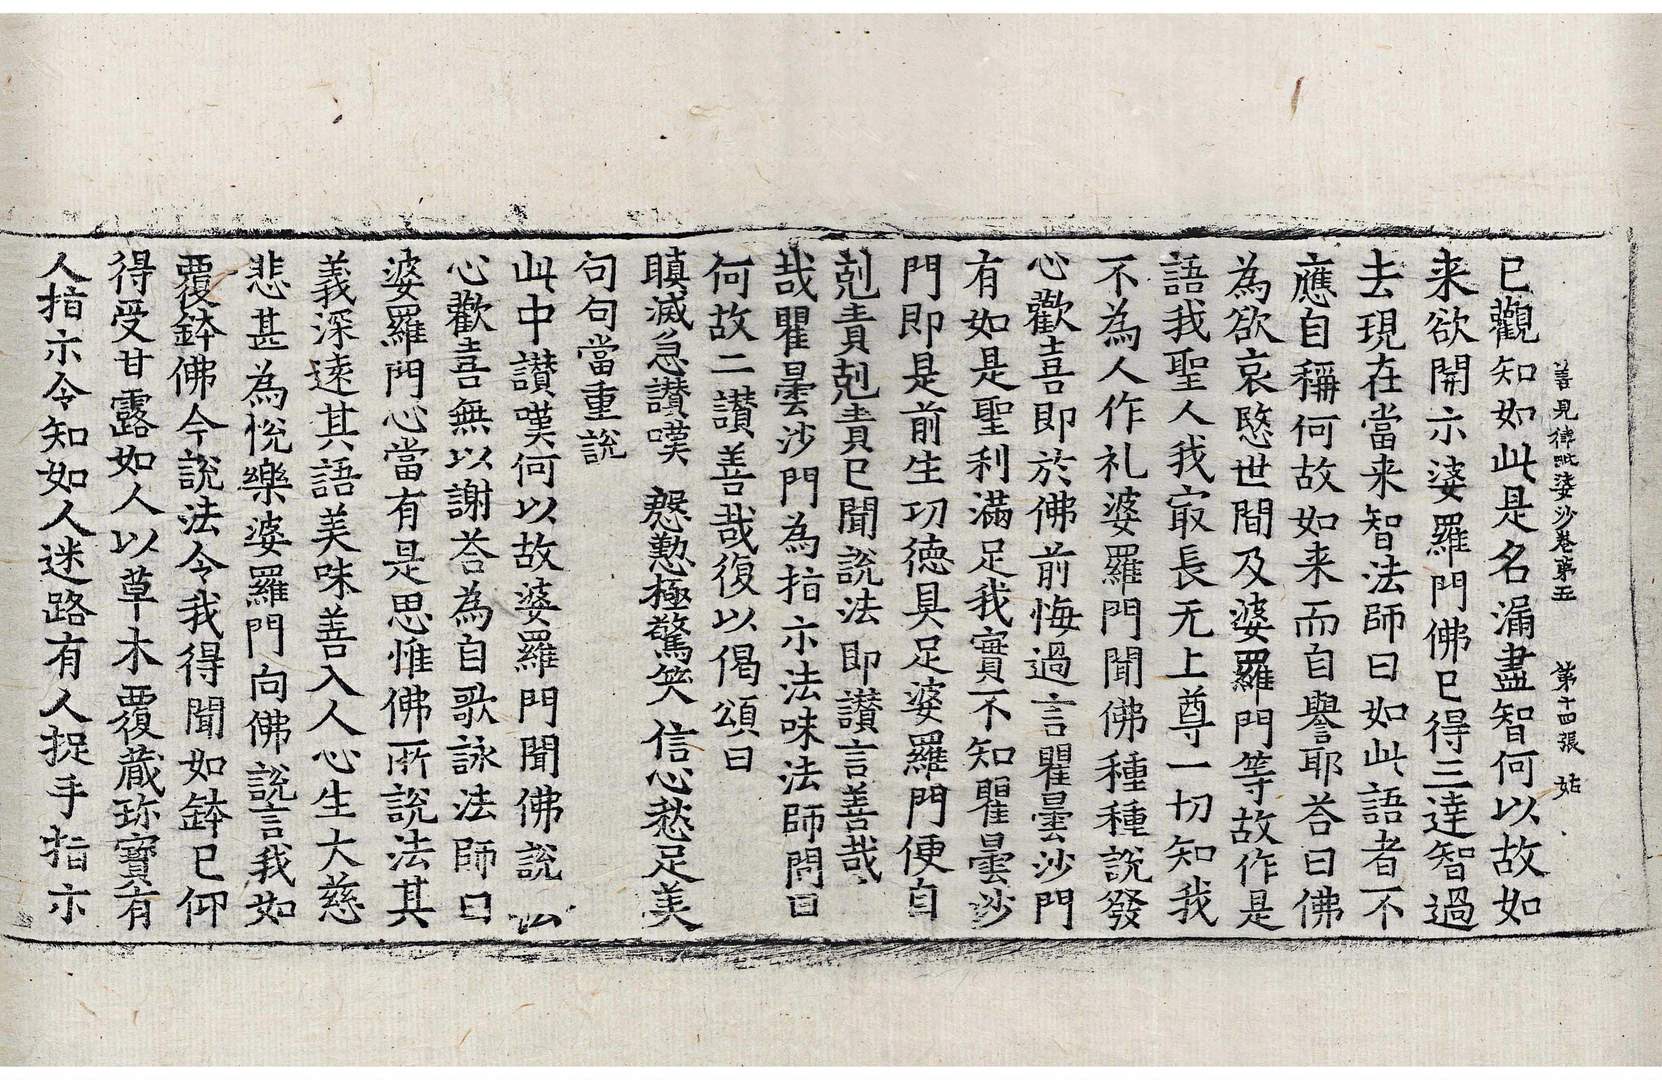 善見律毗婆沙卷第五 第十四張 姑
已觀知如此是名漏盡智何以故如
来欲開示婆羅門佛已得三達智過
去現在當来智法師曰如此語者不
應自稱何故如来而自譽耶荅曰佛
為欲哀愍世間及婆羅門等故作是
語我聖人我㝡長无上尊一切知我
不為人作礼婆羅門聞佛種種說發
心歡喜即於佛前悔過言瞿曇沙門
有如是聖利滿足我實不知瞿曇沙
門即是前生功德具足婆羅門便自
剋責剋責已聞說法即讃言善哉善
哉瞿曇沙門為指示法味法師問曰
何故二讃善哉復以偈頌曰
瞋滅急讃嘆 慇懃極驚笑 信心愁足美
句句當重說
此中讃嘆何以故婆羅門聞佛說法
心歡喜無以謝荅為自歌詠法師曰
婆羅門心當有是思惟佛所說法其
義深遠其語美味善入人心生大慈
悲甚為悅樂婆羅門向佛說言我如
覆鉢佛今說法令我得聞如鉢已仰
得受甘露如人以草木覆蔵珎寶有
人指示令知如人迷路有人捉手指示